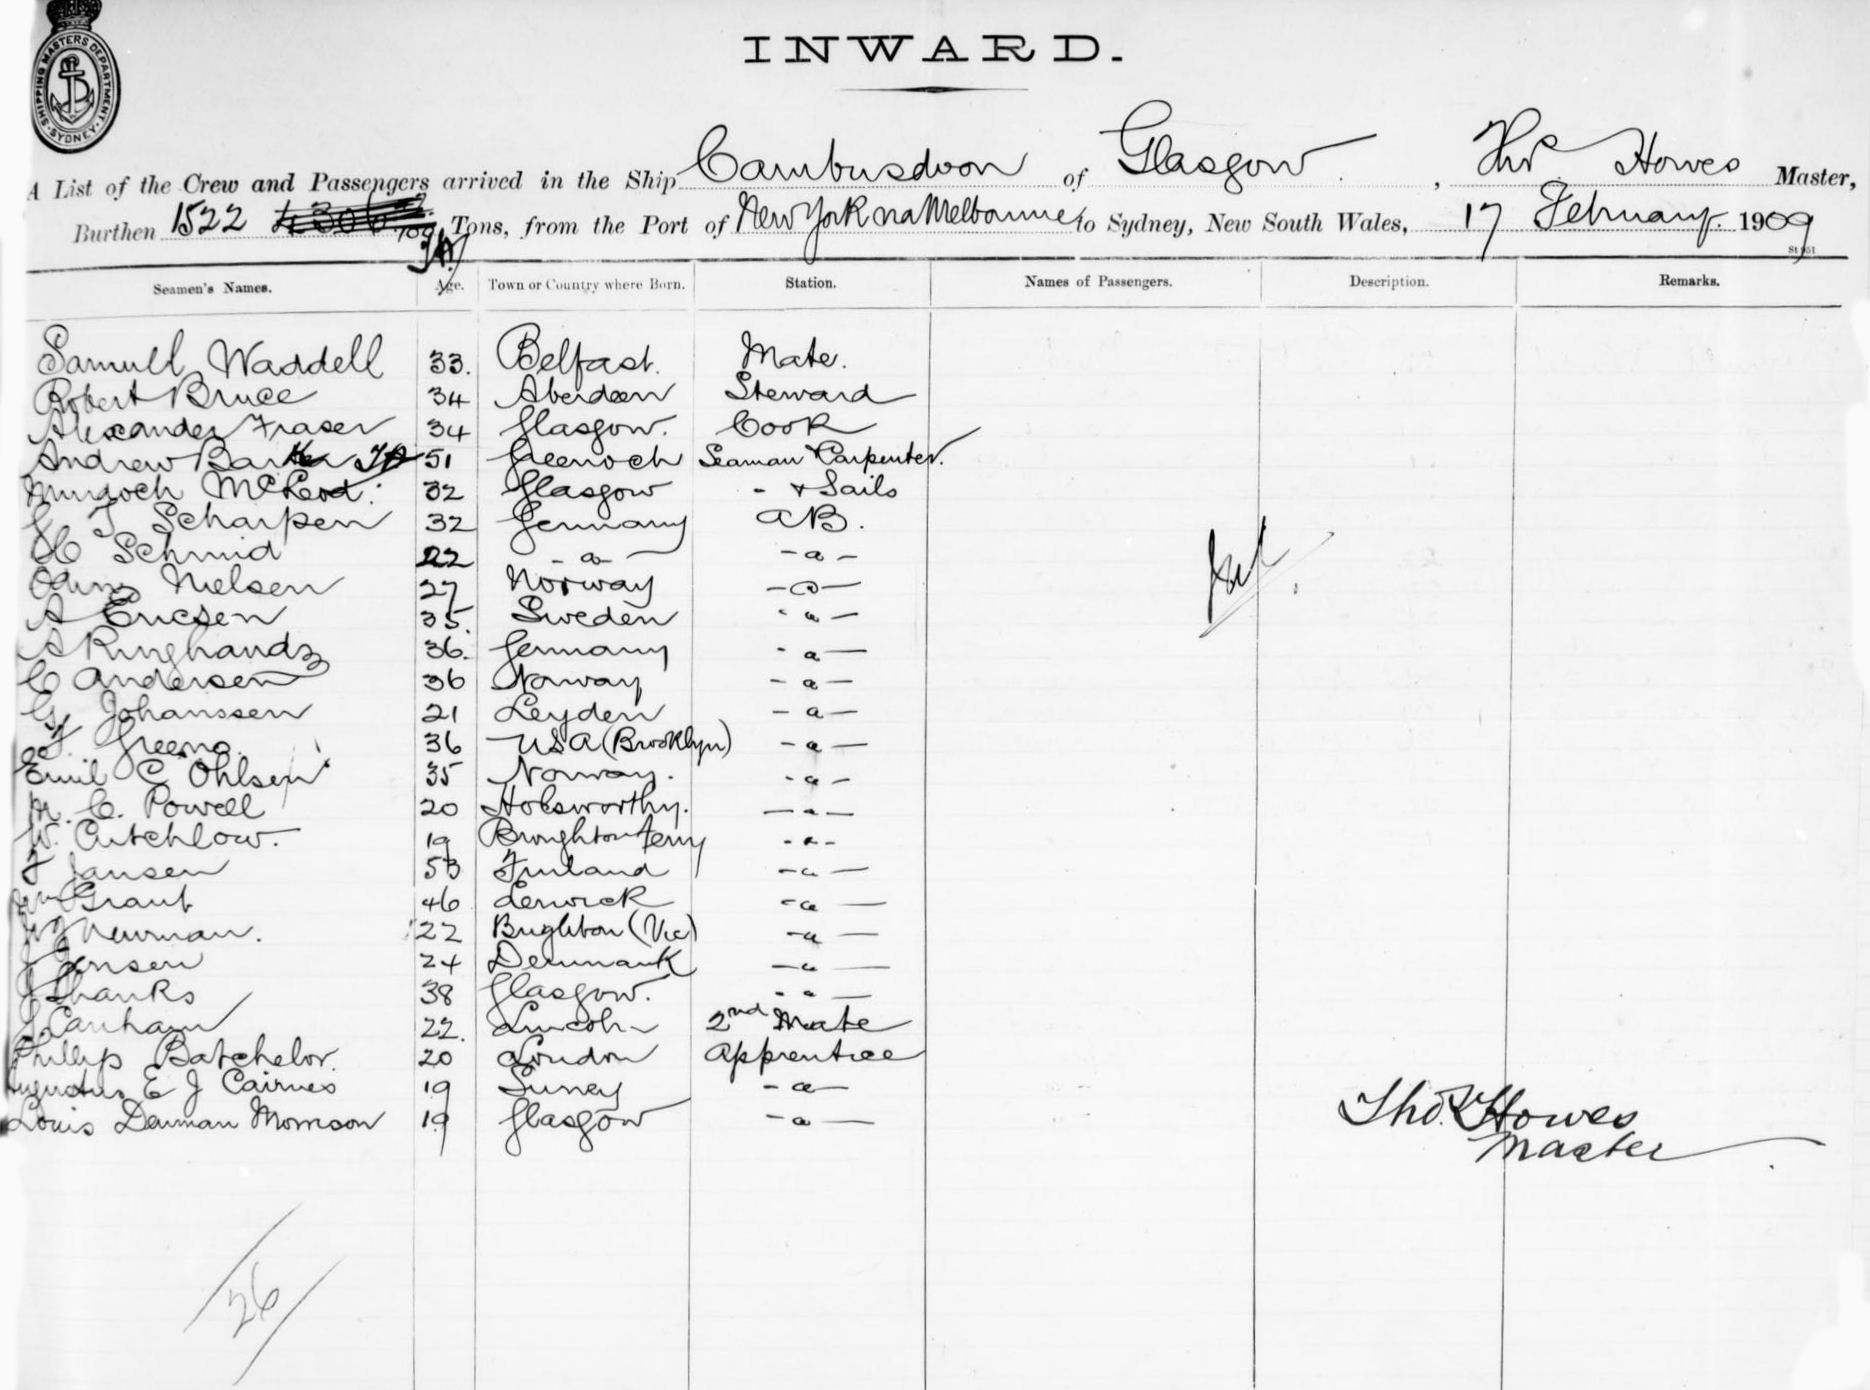 SHIPPING MASTERS DEPARTMENT
SYDNEY
INWARD.
A List of the Crew and Passengers arrived in the Ship Cambusdoon of Glasgow, Thos Howes Master,
Burthen 1522 Tons, from the Port of New York via Melbourne to Sydney, New South Wales, 17 February 1909
Seamen's Names. Age. Town or Country where Born. Station. Names of Passengers. Description. Remarks.
Samuel Waddell 33. Belfast. Mate.
Robert Bruce 34 Aberdeen Steward
Alexander Fraser 34 Glasgow. Cook
Andrew Barker 51 Greenoch Seaman & Carpenter.
Murdoch McLeod. 32 Glasgow - & Sails
Scharpen 32 Germany AB.
H Schmid 22 - a - - a -
Nielsen 27 Norway - a -
A Ericsen 35. Sweden - a -
A Ringhandz 36. Germany - a -
C Andersen 36 Norway - a -
Johanssen 21 Leyden - a -
Greeno. 36 USA (Brooklyn) - a -
Emil C Ohlsen 35 Norway. - a -
C. Powell 20 Holsworthy. - a -
W. Cutchlow. 19 Broughton Ferry - a -
F Jansen 53 Finland - a -
Grant 46 Lerwick - a -
Newman. 22 Brighton (Vic) - a -
J Jensen 24 Denmark - a -
J Shanks 38 Glasgow. - a -
Canham 22. Lincoln 2nd Mate
Phillip Batchelor. 20 London Apprentice
Augustus E J Cairnes 19 Surrey - a -
Louis Denman Morrison 19 Glasgow - a -
Thos Howes
Master
26